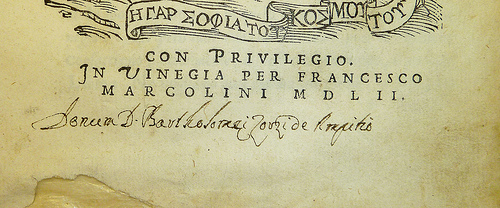 Η ΓΑΡ ΣΟΦΙΑ ΤΟΥ ΚΟΣΜΟΥ ΤΟΥΤΟΥ
CON PRIVILEGIO.
IN VINEGIA PER FRANCESCO
MARCOLINI M D L I I .
Donum D. Bartholomei Zorzi de